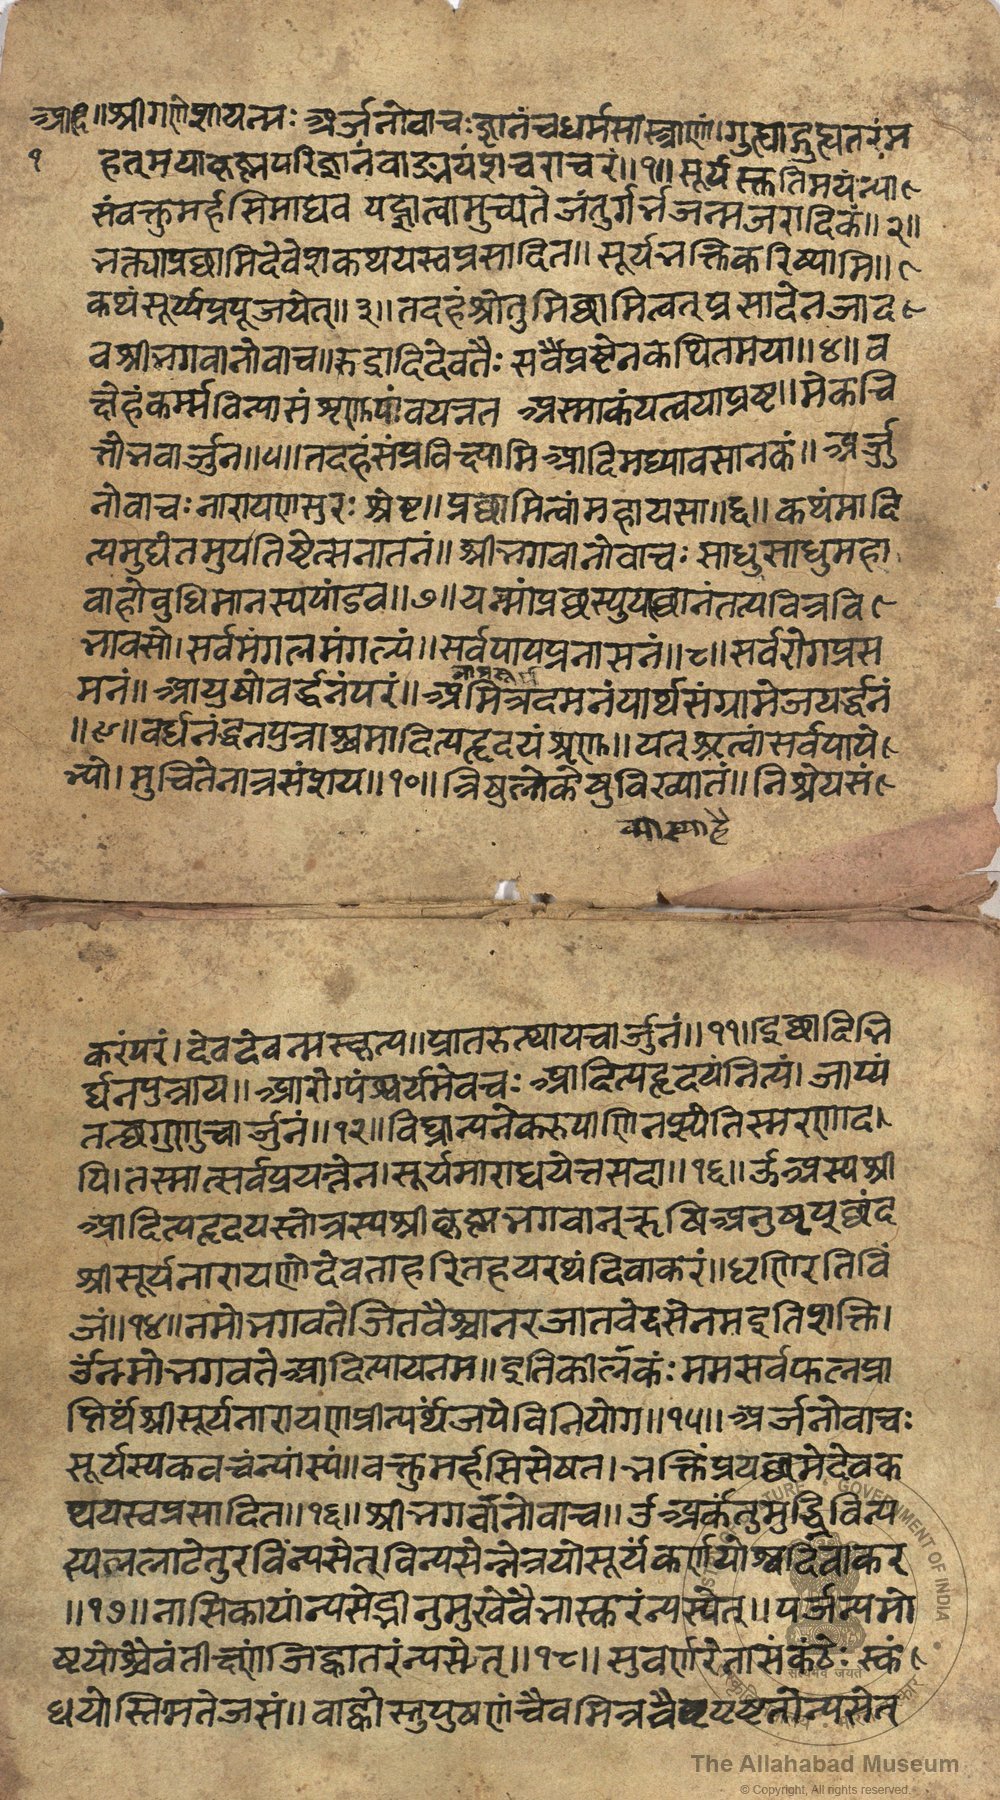 आदि॥श्रीगणेशायन्मः अर्जनोवाचः ज्ञानंचधर्मसास्त्राणां।गुह्याद्गुह्यतरंम
१ हत्मयाकृष्णपरिज्ञानंवाङ्मयंशचराचरं॥१॥सूर्यस्तुतिमयंन्या
संवक्तुमर्हसिमाधव यद्ज्ञात्वामुच्यतेजंतुर्गर्भजन्मजरादिकं॥२॥
भक्त्याप्रछामिदेवेशकथयस्वप्रसादित॥सूर्यभक्तिकरिष्यामि॥
कथंसूर्य्यप्रपूजयेत्॥३॥तदहंश्रोतुमिछामित्वत्प्रसादेनजाद
वश्रीभगवानोवाच॥रुद्रादिदेवतैः सर्वैप्रष्टेनकथितमया॥४॥व
क्षेहंकर्म्मविन्यासं पांवयन्नत अस्माकंयत्वयाप्रष्ट॥मेकचि
त्तोभवार्जुन॥५॥तदहंसंप्रविक्ष्यामिआदिमध्यावसानकं॥अर्जु
नोवाचः नारायणसुरः श्रेष्ट॥प्रछामित्वांमहायसा॥६॥कथंमादि
त्यमुद्यंतमुपतिष्टेत्सनातनं॥श्रीभगवानोवाचः साधुसाधुमहा
वाहोवुधिमानस्यपांडव॥७॥यन्मांप्रछस्युपस्छानंतत्पवित्रवि
भावसो।सर्वमंगलमंगल्यं॥सर्वपापप्रनासनं॥८॥सर्वरोगप्रस
मनं॥आयुषोवर्द्धनंपरं॥अमित्रदमनंपार्थसंग्रामेजयर्द्धनं
॥९॥वर्धनंद्धनपुत्राश्चमादित्यहृदयंश्रृणा॥यत्श्रुत्वांसर्वपापे
भ्यो।मुचितेनात्रसंशय॥१०॥त्रिषुलोकेषुविख्यातं॥निश्रेयसं

करंपरं।देवदेवन्मस्कृत्य॥प्रातरुत्थायचार्जुनं॥११॥इछादिभि
र्द्धनपुत्राय॥आरोग्यंश्वर्यमेवचः आदित्यहृदयंनित्यं।जाप्यं
तत्छणुणुचार्जुनं॥१२॥विघ्नान्यनेकरुपाणिनष्यंतिस्मरणाद।
पि।तस्मात्सर्वप्रयत्नेन।सूर्यमाराधयेत्तसदा॥१६॥ऊँअस्यश्री
आदित्यहृदयस्तोत्रस्यश्रीकृष्णभगवान्ऋषिअनुष्टुप्छंद
श्रीसूर्यनारायणोदेवताहरितहयरथंदिवाकरं॥घृणिरतिविं
जं॥१४॥नमोभगवतेजितवैश्वानरजातवेदसेनमइतिशक्ति।
ऊँनमोभगवतेआदित्यायनम॥इतिकीलकंः ममसर्वफलप्रा
प्तिर्थंश्रीसूर्यनारायणप्रीत्यर्थेजपेविनियोग॥१५॥अर्जनोवाचः
सूर्यस्यकवचंन्यांस्यं॥वक्तुमर्हसिसेषत।भक्तिंप्रयछमेदेवक
थयस्वप्रसादित॥१६॥श्रीभगवानोवाच॥ऊँअर्कंतुमुर्द्धिविन्य
स्यललाटेतुरविंन्यसेत्विन्यसेन्नेत्रयोसूर्यंकर्णयोश्चदिवाकर
॥१७॥नासिकायांन्यसेद्भानुमुखेवैभास्करंन्यस्येत्॥पर्जन्यमो
ष्टयोश्चैवंतीक्ष्णंजिह्वातरंन्यसेत्॥१८॥सुवर्णरेतासंकंठेः स्कं
धयोस्तिग्मतेजसं॥वाह्वोस्तुपुषणंचैवमित्रवै
The Allahabad Museum
© Copyright, All rights reserved.